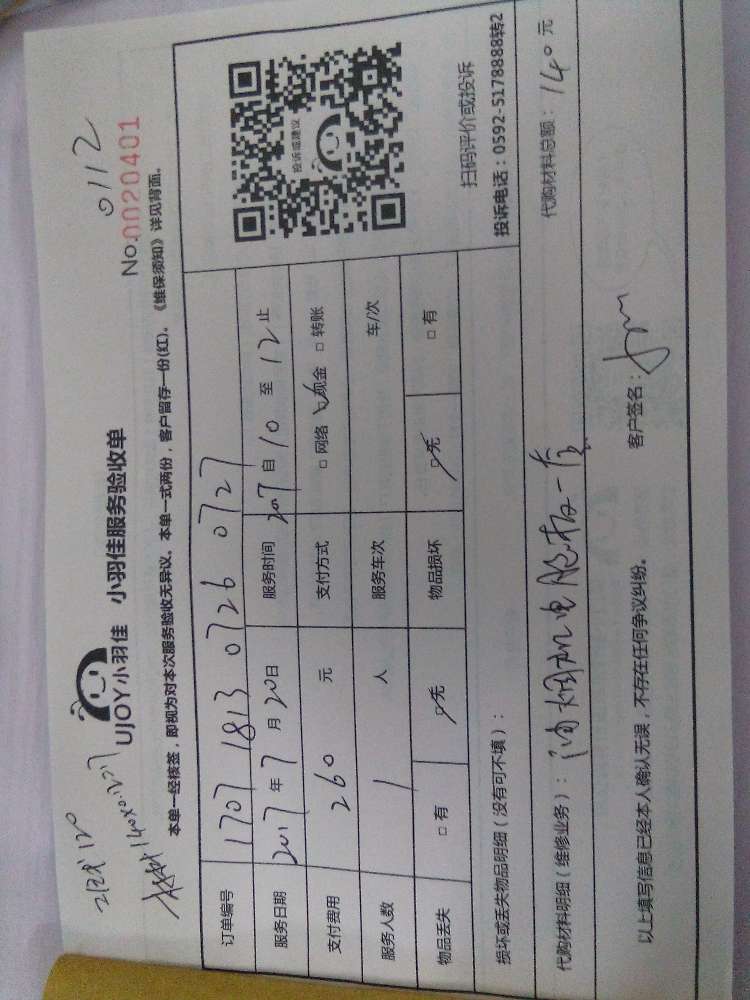 0112
UJOY小羽佳 小羽佳服务验收单
No.0020401
本单一经核签，即视为对本次服务验收无异议。本单一式两份，客户留存一份(红)。《维保须知》详见背面。
订单编号 1707 1813 0726 0727
服务日期 2017年7月20日 服务时间 2017自10至12止
支付费用 260元 支付方式 □网络 □现金 □转账
服务人数 1人 服务车次 车/次
物品丢失 □有 □无 物品损坏 □无 □有
投诉或建议
扫码评价或投诉
投诉电话：0592-5178888转2
损坏或丢失物品明细（没有可不填）：
代购材料明细（维修业务）：油烟机电脑板一套
代购材料总额：140元
以上填写信息已经本人确认无误，不存在任何争议纠纷。
客户签名：